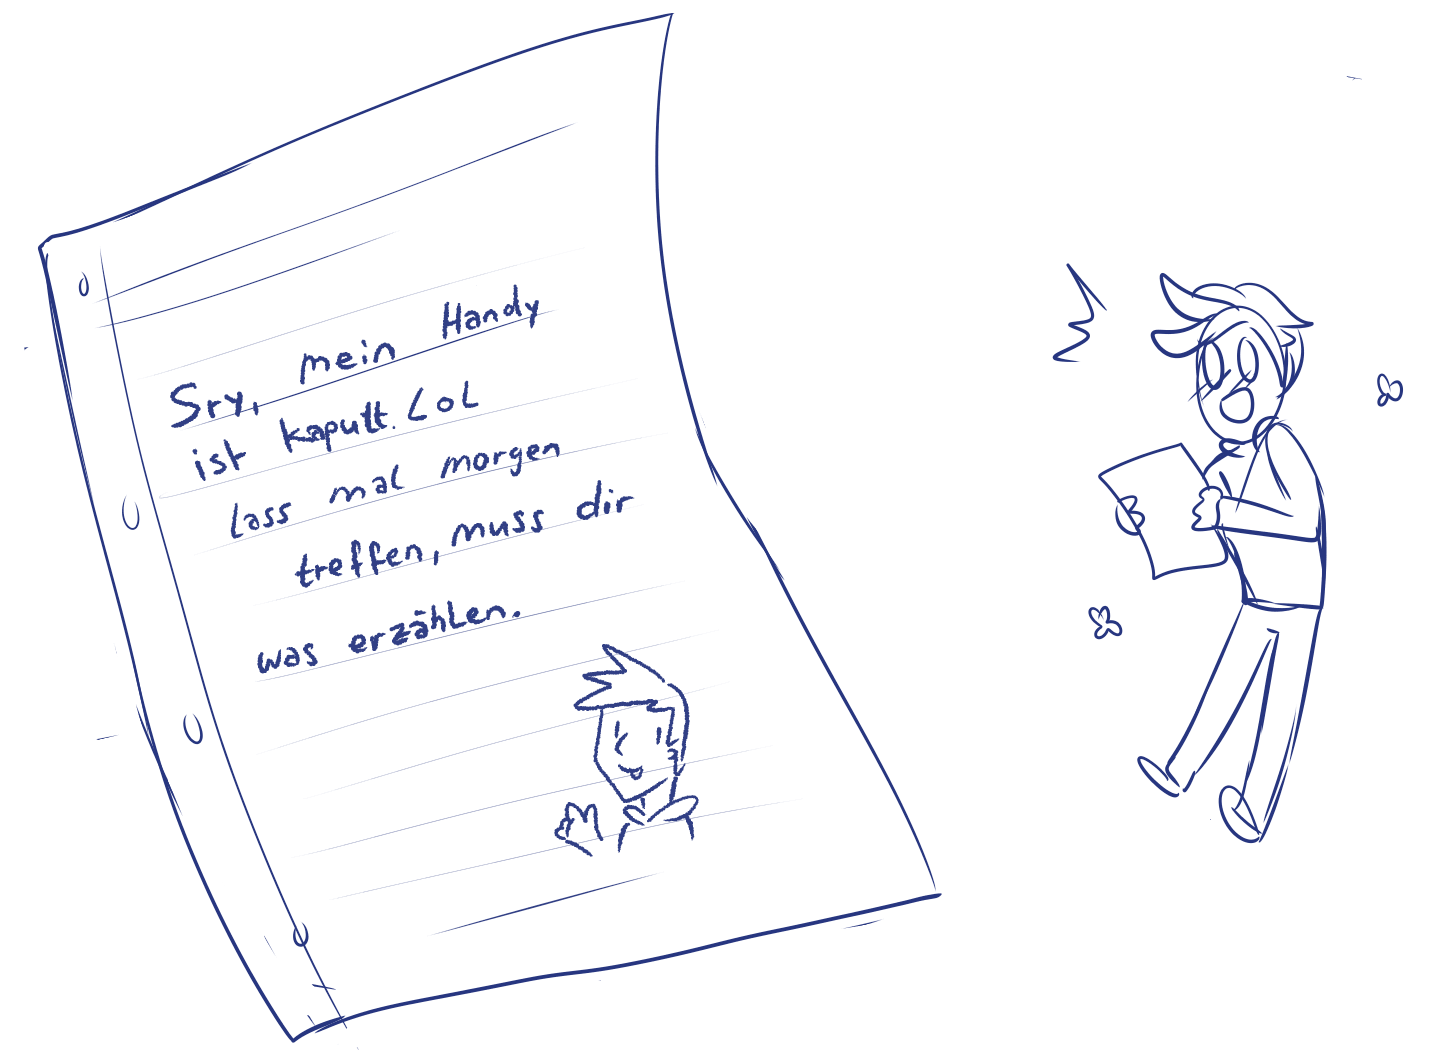 Sry, mein Handy
ist kaputt. LoL
lass mal morgen
treffen, muss dir
was erzählen.